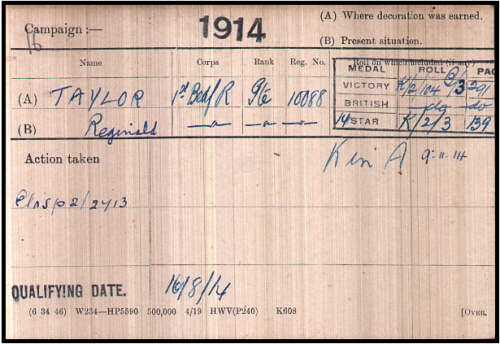 Campaign :— 1914 (A) Where decoration was earned.
(B) Present situation.
Name Corps Rank Reg. No. Roll on which included (if any)
MEDAL ROLL PAG
(A) TAYLOR 1st Bedf/R 10088 VICTORY K/2/104 291
(B) Reginald BRITISH do do
14 STAR K/2/3 139
Action taken K in A 9-11-14
Clasp 2/2413
QUALIFYING DATE. 16/8/14
(6 34 46) W234—HP5590 500,000 4/19 HWV(P240) K608 [OVER.